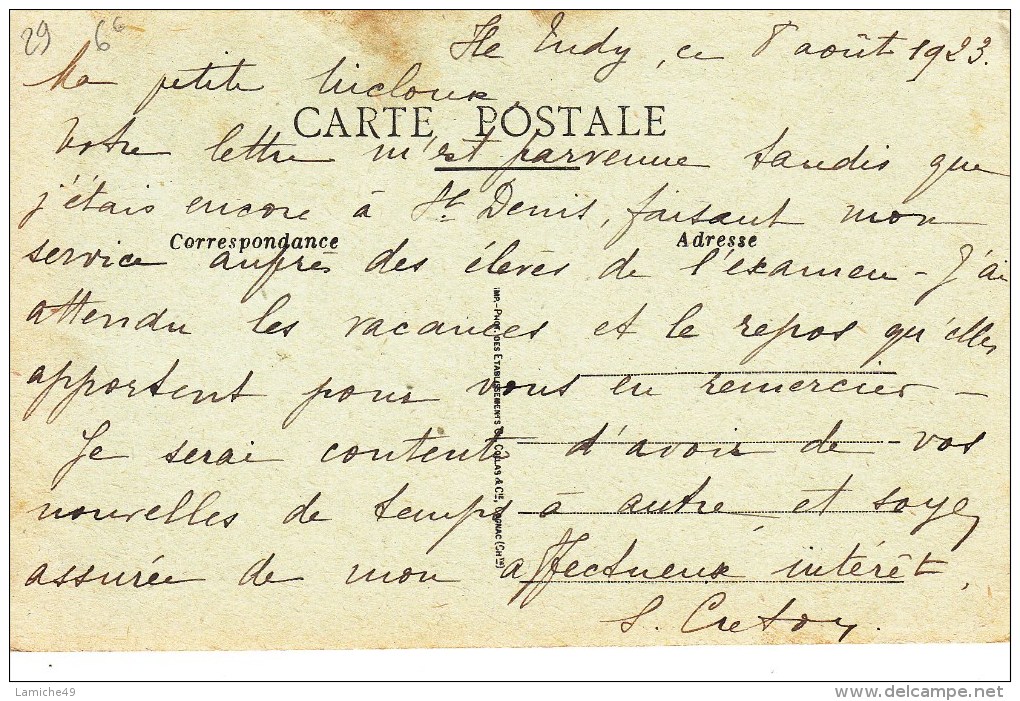 29 6 6
Ile Tudy, ce 8 août 1923.
Ma petite
CARTE POSTALE
Votre lettre m'est parvenue tandis que
j'étais encore à St Denis, faisant mon
Correspondance Adresse
service auprès des élèves de l'examen - J'ai
attendu les vacances et le repos qu'elles
apportent pour vous en remercier -
Je serai contente d'avoir de vos
nouvelles de temps à autre et soyez
assurée de mon affectueux intérêt.
S. Cretoy.
IMP.-PHOT. DES ETABLISSEMENTS COLLAS & CIE, COGNAC (CHTE)
Lamiche49
www.delcampe.net